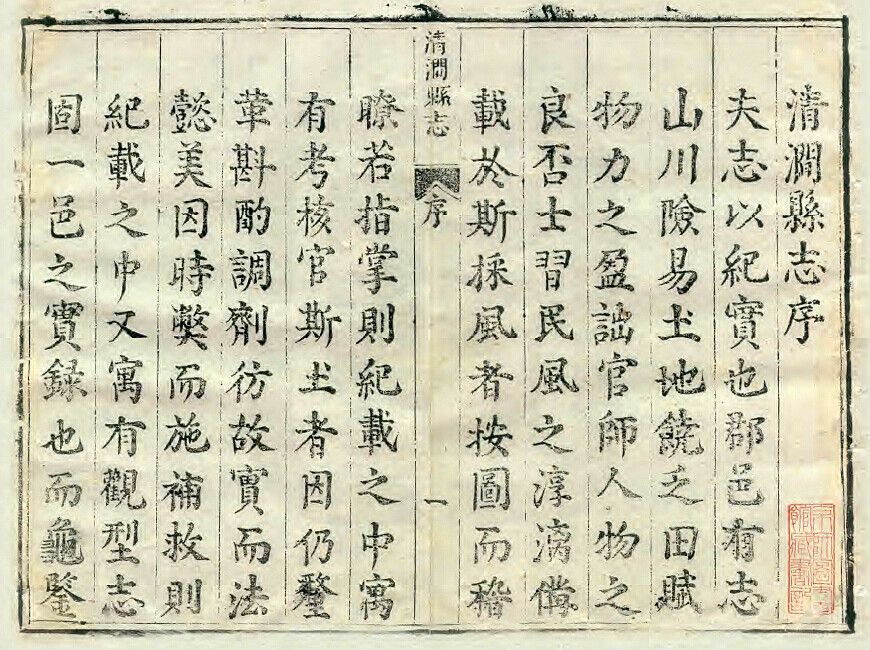 清澗縣志序
夫志以紀實也郡邑有志
山川險易土地饒乏田賦
物力之盈詘官師人物之
良否士習民風之淳漓僃
載於斯採風者按圖而稽
清澗縣志 序 一
瞭若指掌則紀載之中寓
有考核官斯土者因仍釐
革斟酌調劑彷故實而法
懿美因時弊而施補救則
紀載之中又寓有觀型志
固一邑之實録也而龜鑒